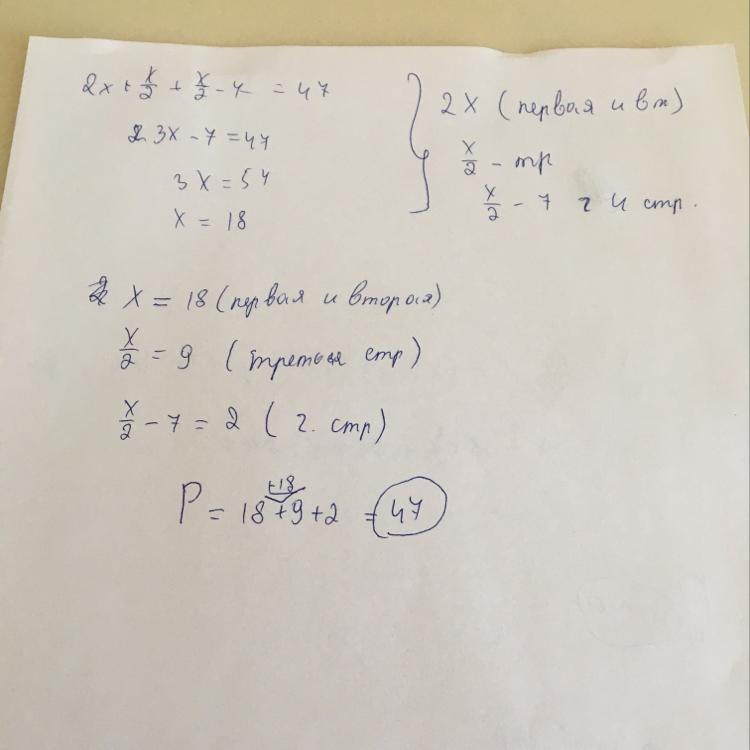 2x + x/2 + x/2 - 7 = 47
3x - 7 = 47
3x = 54
x = 18
2x (первая и вт)
x/2 - тр
x/2 - 7 ч и стр.
x = 18 (первая и вторая)
x/2 = 9 (третья стр)
x/2 - 7 = 2 (ч. стр)
+18
P = 18 + 9 + 2 = 47